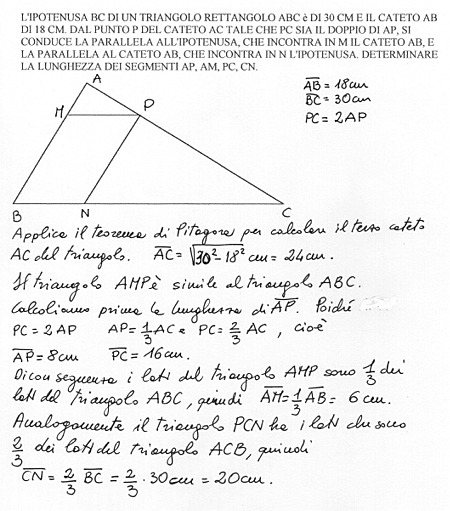 L'IPOTENUSA BC DI UN TRIANGOLO RETTANGOLO ABC è DI 30 CM E IL CATETO AB
DI 18 CM. DAL PUNTO P DEL CATETO AC TALE CHE PC SIA IL DOPPIO DI AP, SI
CONDUCE LA PARALLELA ALL'IPOTENUSA, CHE INCONTRA IN M IL CATETO AB, E
LA PARALLELA AL CATETO AB, CHE INCONTRA IN N L'IPOTENUSA. DETERMINARE
LA LUNGHEZZA DEI SEGMENTI AP, AM, PC, CN.
AB = 18cm
BC = 30cm
PC = 2AP
A
M
P
B
N
C
Applico il teorema di Pitagora per calcolare il terzo cateto
AC del triangolo. AC = √30²-18² cm = 24cm.
Il triangolo AMP è simile al triangolo ABC.
Calcoliamo prima la lunghezza di AP. Poiché
PC = 2AP AP = 1/3 AC e PC = 2/3 AC, cioè
AP = 8cm PC = 16cm.
Di conseguenza i lati del triangolo AMP sono 1/3 dei
lati del triangolo ABC, quindi AM = 1/3 AB = 6cm.
Analogamente il triangolo PCN ha i lati che sono
2/3 dei lati del triangolo ACB, quindi
CN = 2/3 BC = 2/3 · 30cm = 20cm.